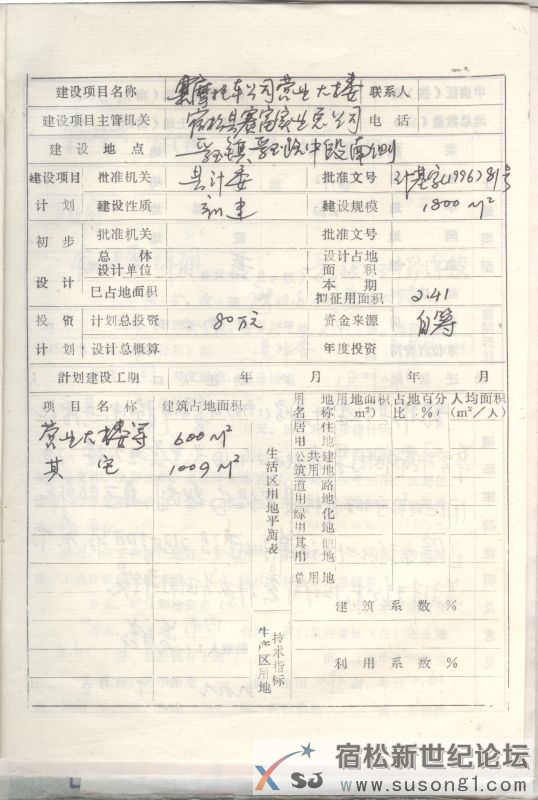 建设项目名称 摩托车公司营业大楼 联系人
建设项目主管机关 宿松县赛富实业总公司 电话
建设地点 孚玉镇孚玉路中段南侧
建设项目 批准机关 县计委 批准文号 计基字(1996)81号
计划 建设性质 新建 建设规模 1800 M²
初步 批准机关 批准文号
总体设计单位 设计占地面积
设计 已占地面积 本期拟征用面积 2.41
投资 计划总投资 80万元 资金来源 自筹
计划 设计总概算 年度投资
計划建设工期 年 月 年 月
项目名称 建筑占地面积 用地名称 用地面积(m²) 占地百分比(%) 人均面积(m²/人)
营业大楼等 600M²
其它 1009M²
生活区用地平衡表
居住用地
公共建筑用地
道路用地
绿化用地
其他用地
总用地
生产区用地技术指标
建筑系数%
利用系数%
宿松新世纪论坛
XSJ www.susong1.com